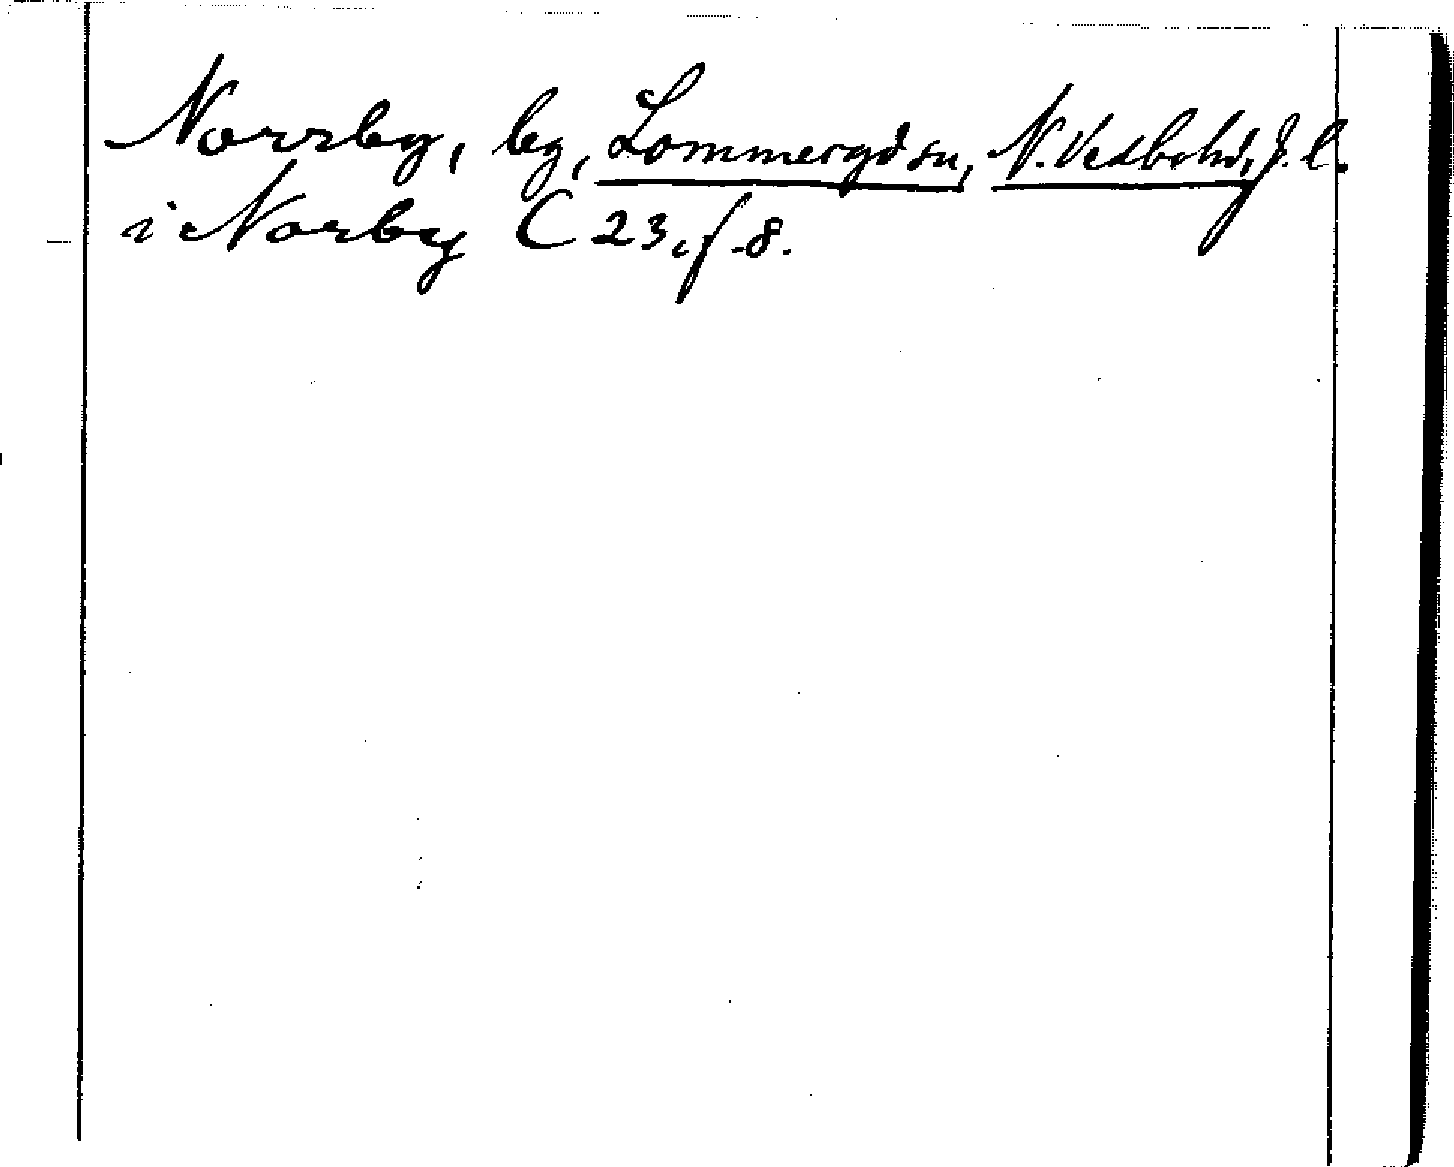 Norrby, by, Lommergd sn, N. Vedbohd, J. l.
i Norby C 23, f. 8.